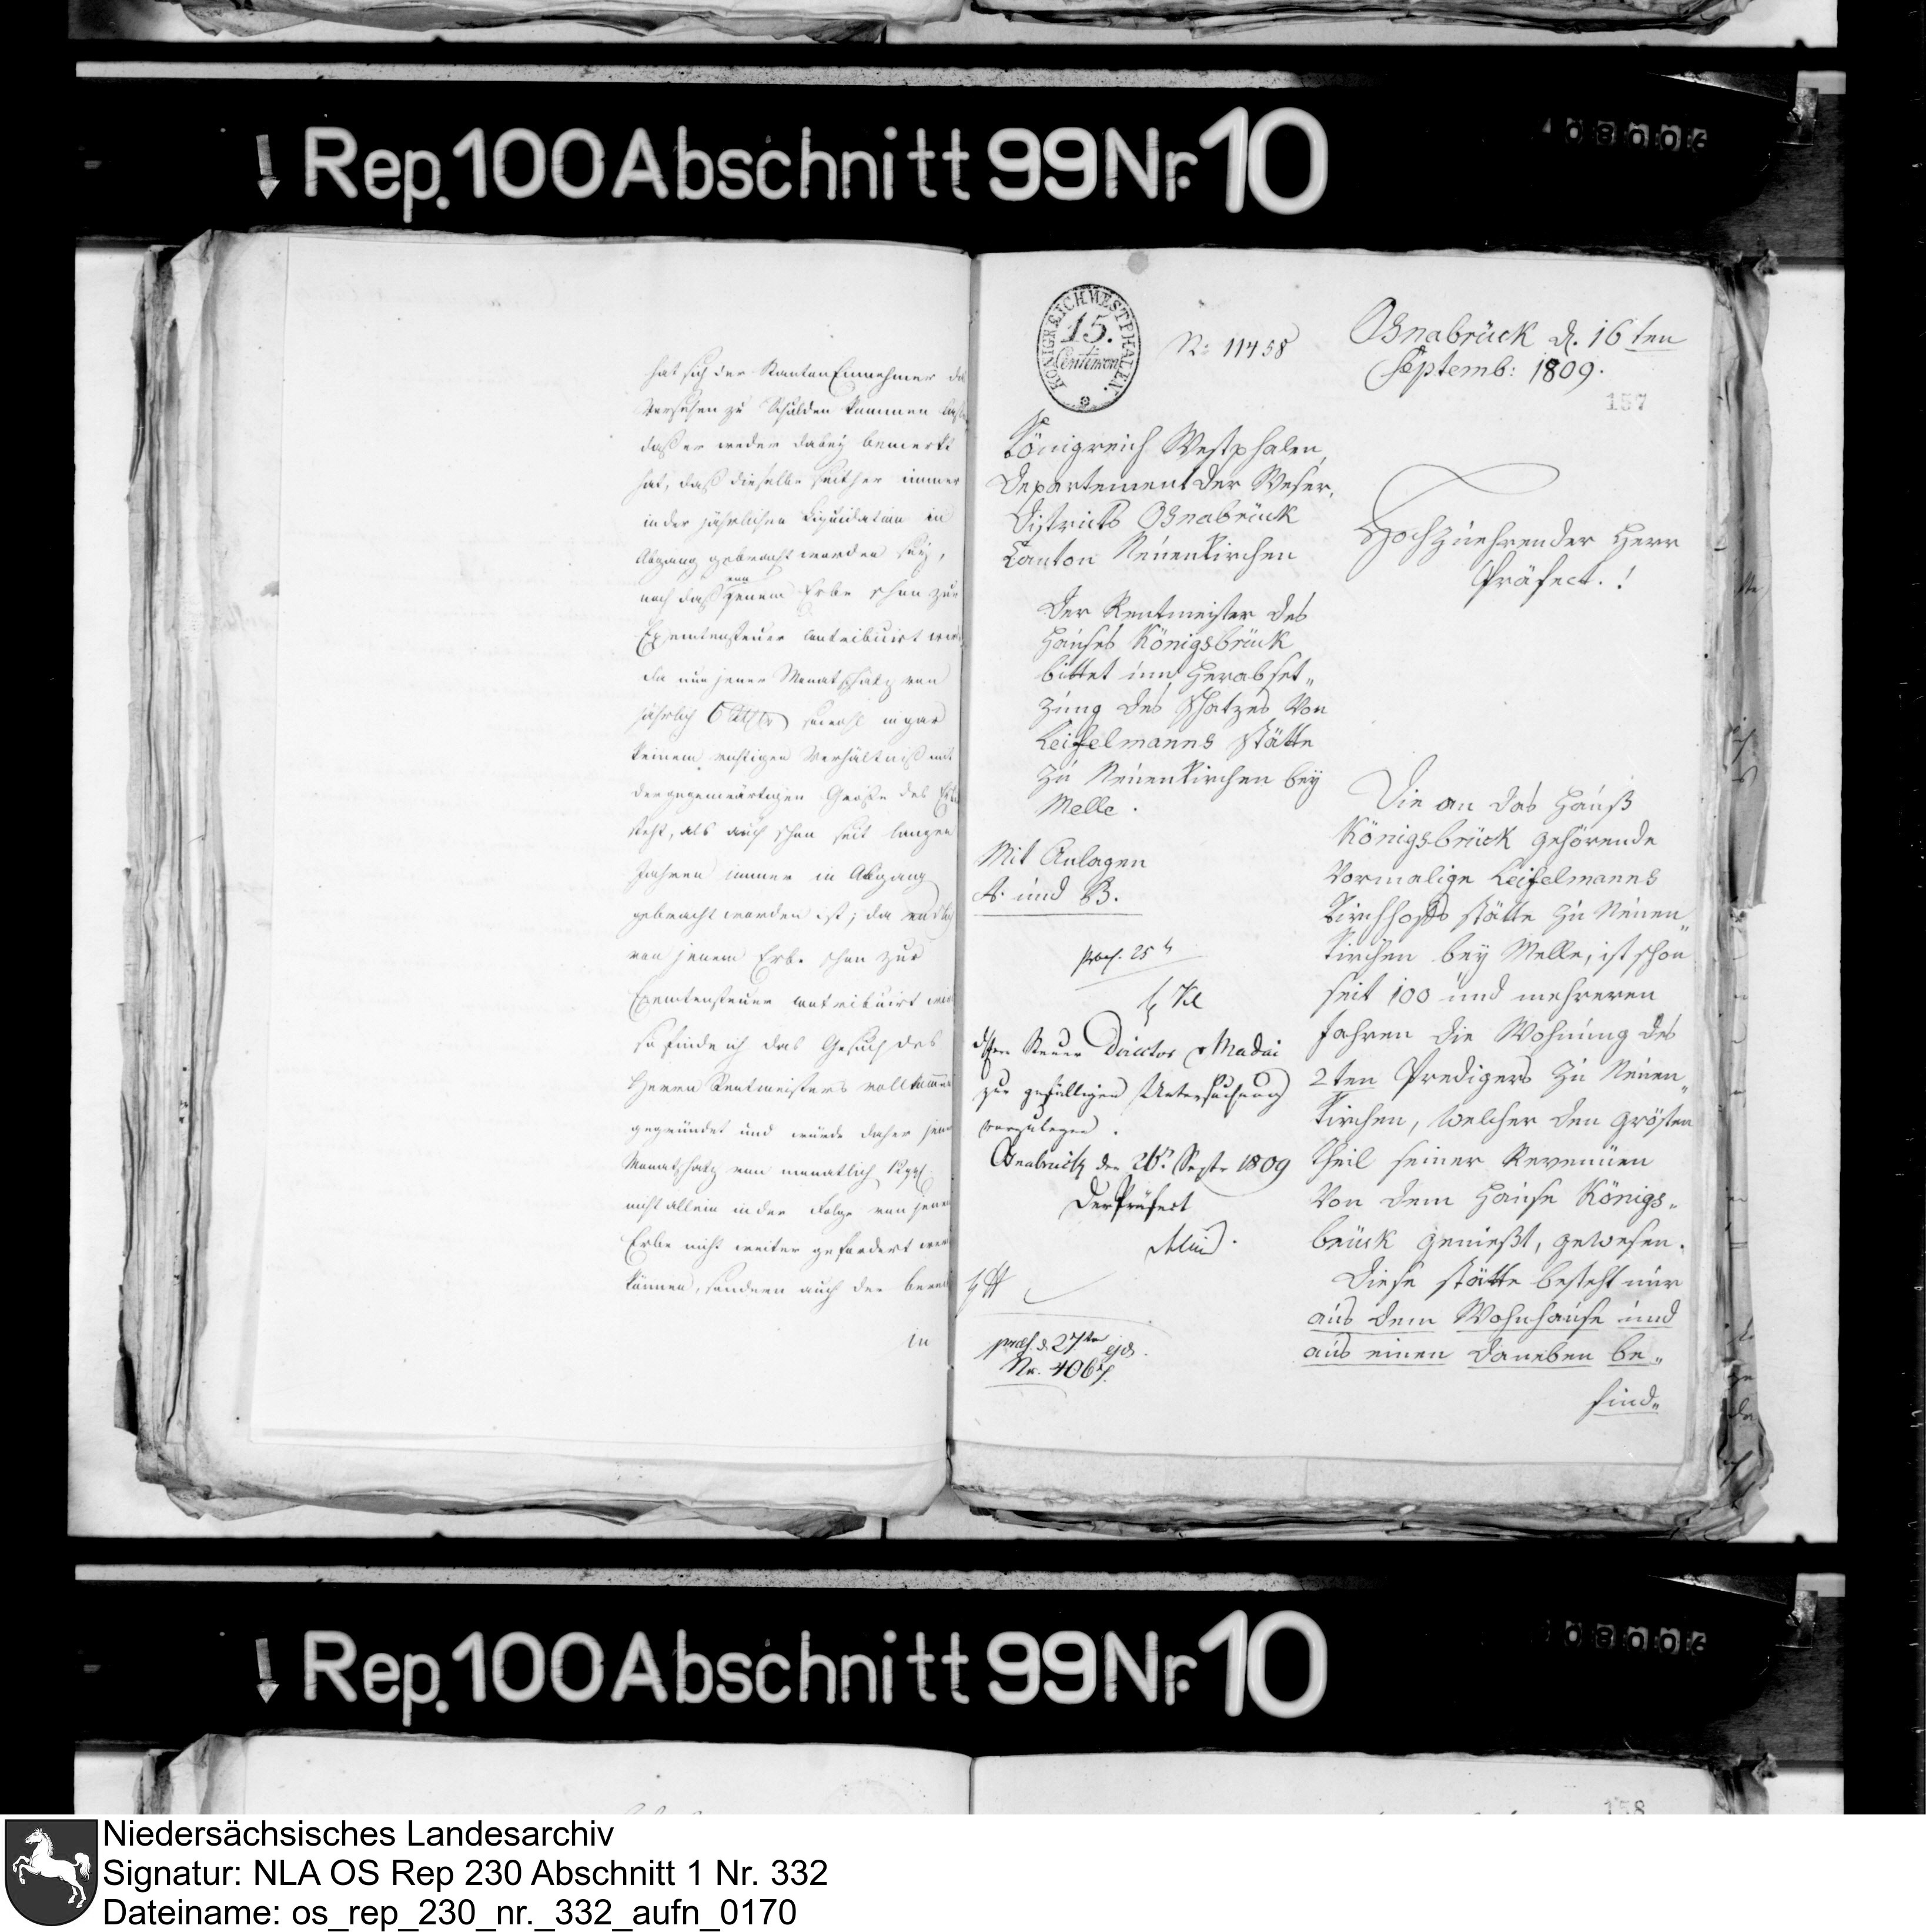 Rep. 100 Abschnitt 99 Nr. 10
hat sich der KantonEinnehmer das
Versehen zu Schulden kommen
daß er weder dabey bemerkt
hat, daß dieselbe seither immer
in der jährlichen Liquidation in
Abgang gebracht worden sey,
noch daß von jenem Erbe schon zur
Exemtensteuer contribuirt
da nun jener Monatschatz von
jährlich 6 sowohl in gar
keinem richtigen Verhältniß mit
der gegenwärtigen Große des
steht, als auch schon seit langen
Jahren immer in Abgang
gebracht worden ist; da endlich
von jenem Erbe schon zur
Exemtensteuer contribuirt
so finde ich das Gesuch des
Herrn Rentmeisters vollkommen
gegründet und würde daher
Monatschatz von monatlich
nicht allein in der Folge von jenem
Erbe nicht weiter gefordert
können, sondern auch der
in
KÖNIGREICH WESTPHALEN.
15.
Centimen
N: 11458
Osnabrück d. 16ten
Septemb: 1809.
157
Königreich Westphalen,
Departement der Weser,
Districts Osnabrück
Canton Neuenkirchen
Der Rentmeister des
Hauses Königsbrück
bittet um Herabset„
zung des Schatzes von
Leifelmanns Stätte
zu Neuenkirchen bey
Melle.
Mit Anlagen
A. und B.
præs. 25
Herrn Steuer Director v Madai
zur gefälligen Untersuchung
vorzulegen.
Osnabrück den 26. Septr 1809
Der Präfect
præs. d. 27ten ejd.
Nr. 4067.
Hochzuehrender Herr
Präfect.!
Die an das Hauß
Königsbrück gehörende
vormalige Leifelmanns
Kirchhofs stätte zu Neuen„
kirchen bey Melle, ist schon
seit 100 und mehreren
Jahren die Wohnung des
2ten Predigers zu Neuen„
kirchen, welcher den grösten
theil seiner Revenüen
von dem Hause Königs„
brück genießt, gewesen.
Diese stätte besteht nur
aus dem Wohnhause und
aus einen daneben be„
find„
Rep. 100 Abschnitt 99 Nr. 10
158
Niedersächsisches Landesarchiv
Signatur: NLA OS Rep 230 Abschnitt 1 Nr. 332
Dateiname: os_rep_230_nr._332_aufn_0170